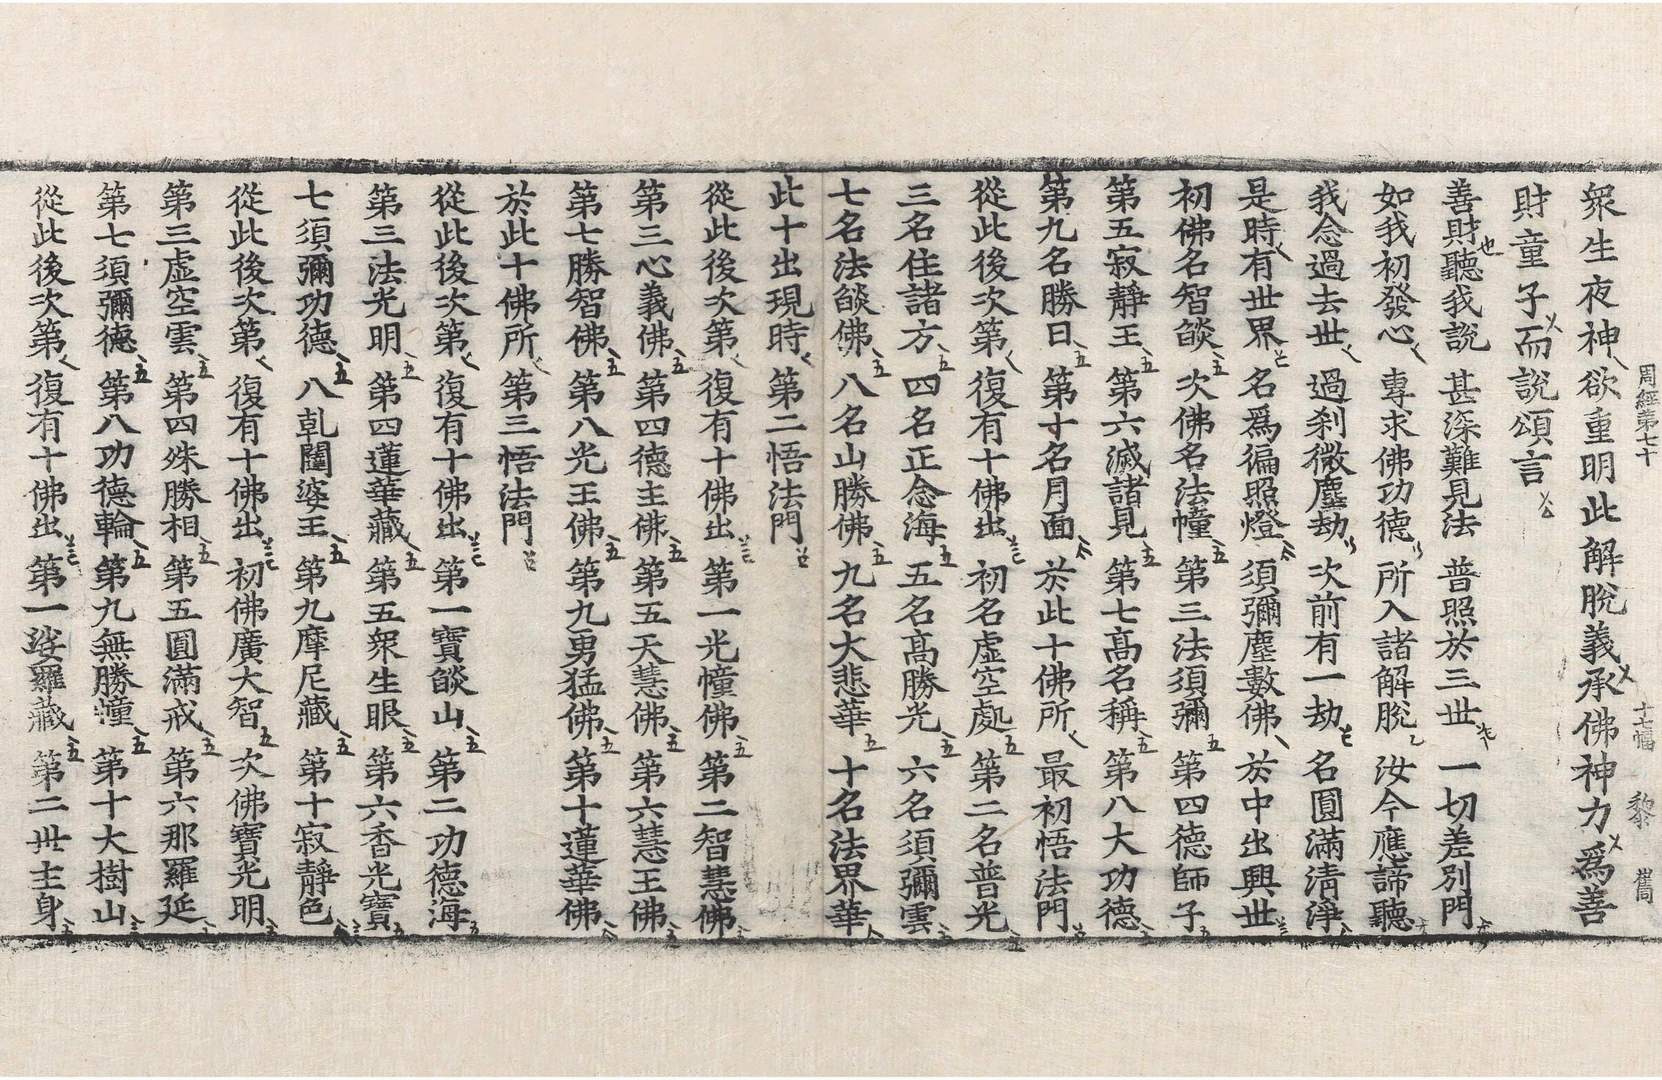 周經第七十 十七幅 黎
衆生夜神欲重明此解脫義承佛神力爲善
財童子而說頌言
善財聽我說 甚深難見法 普照於三世 一切差別門
如我初發心 專求佛功德 所入諸解脫 汝今應諦聽
我念過去世 過刹微塵劫 次前有一劫 名圓滿清淨
是時有世界 名爲徧照燈 須彌塵數佛 於中出興世
初佛名智燄 次佛名法幢 第三法須彌 第四德師子
第五寂靜王 第六滅諸見 第七髙名稱 第八大功德
第九名勝日 第十名月面 於此十佛所 最初悟法門
從此後次第 復有十佛出 初名虛空處 第二名普光
三名住諸方 四名正念海 五名髙勝光 六名須彌雲
七名法燄佛 八名山勝佛 九名大悲華 十名法界華
此十出現時 第二悟法門
從此後次第 復有十佛出 第一光幢佛 第二智慧佛
第三心義佛 第四德主佛 第五天慧佛 第六慧王佛
第七勝智佛 第八光王佛 第九勇猛佛 第十蓮華佛
於此十佛所 第三悟法門
從此後次第 復有十佛出 第一寶燄山 第二功德海
第三法光明 第四蓮華藏 第五衆生眼 第六香光寶
七須彌功德 八乹闥婆王 第九摩尼藏 第十寂靜色
從此後次第 復有十佛出 初佛廣大智 次佛寶光明
第三虛空雲 第四殊勝相 第五圓滿戒 第六那羅延
第七須彌德 第八功德輪 第九無勝幢 第十大樹山
從此後次第 復有十佛出 第一娑羅藏 第二世主身